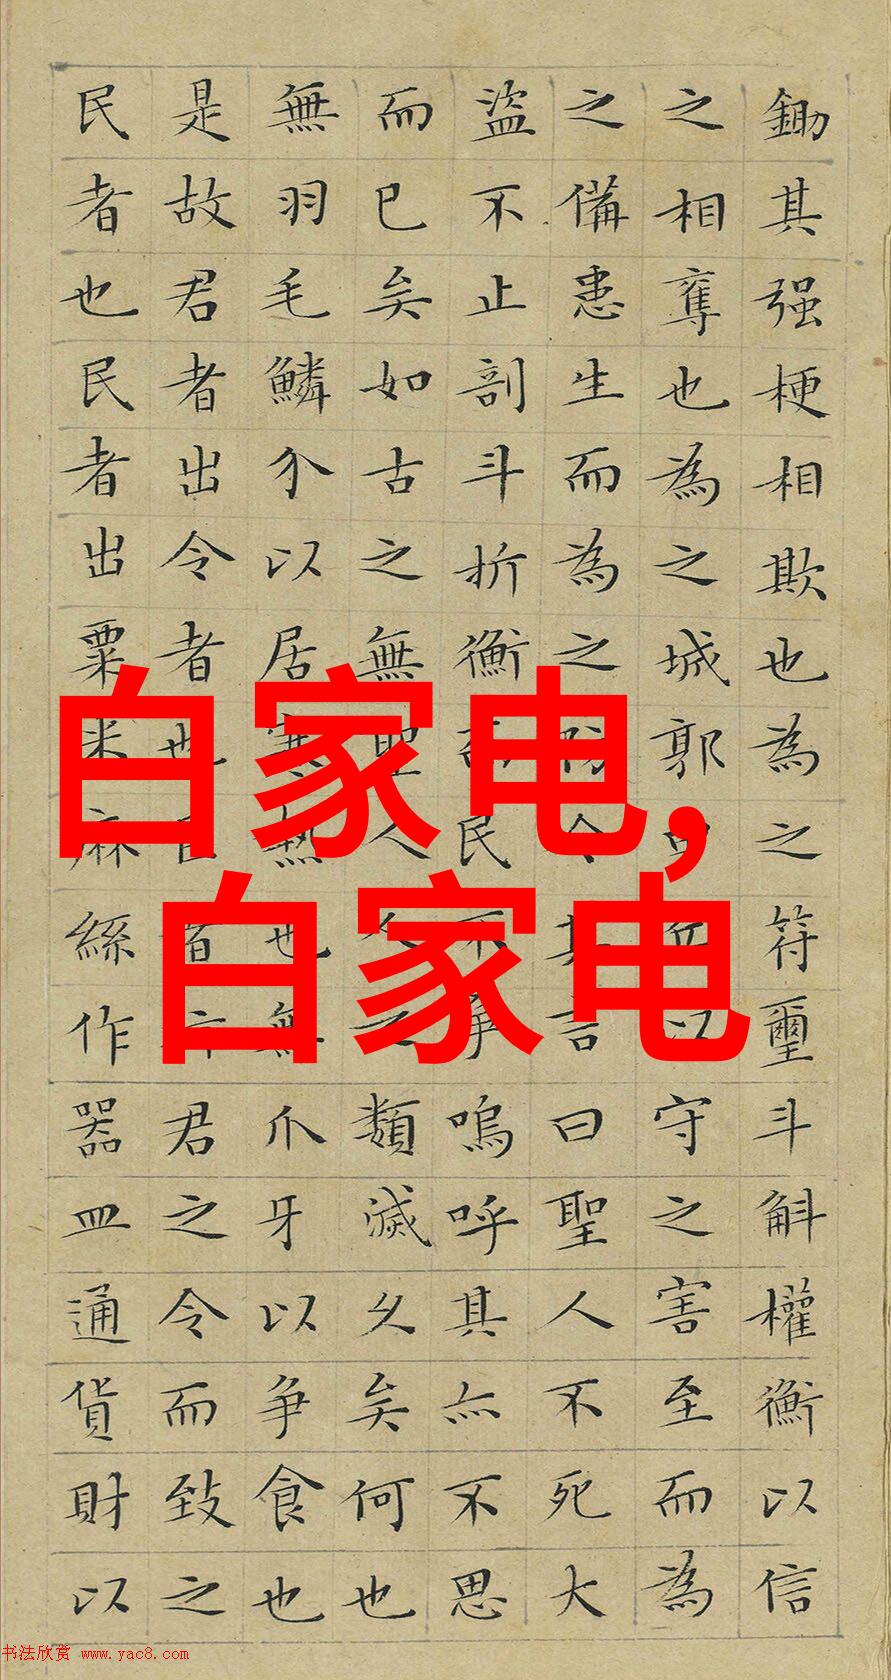 鋤其强梗相欺也為之符璽斗斛權衡以信
之相奪也為之城郭甲兵以守之害至而為
之備患生而為之防今其言曰聖人不死大
盜不止剖斗折衡而民不爭嗚呼其亦不思
而已矣如古之無聖人人之類滅久矣何也
無羽毛鱗介以居寒熱也無爪牙以爭食也
是故君者出令者也臣者行君之令而致之
民者也民者出粟米麻絲作器皿通貨財以
白家电,
白家电
书法欣赏 www.yac8.com